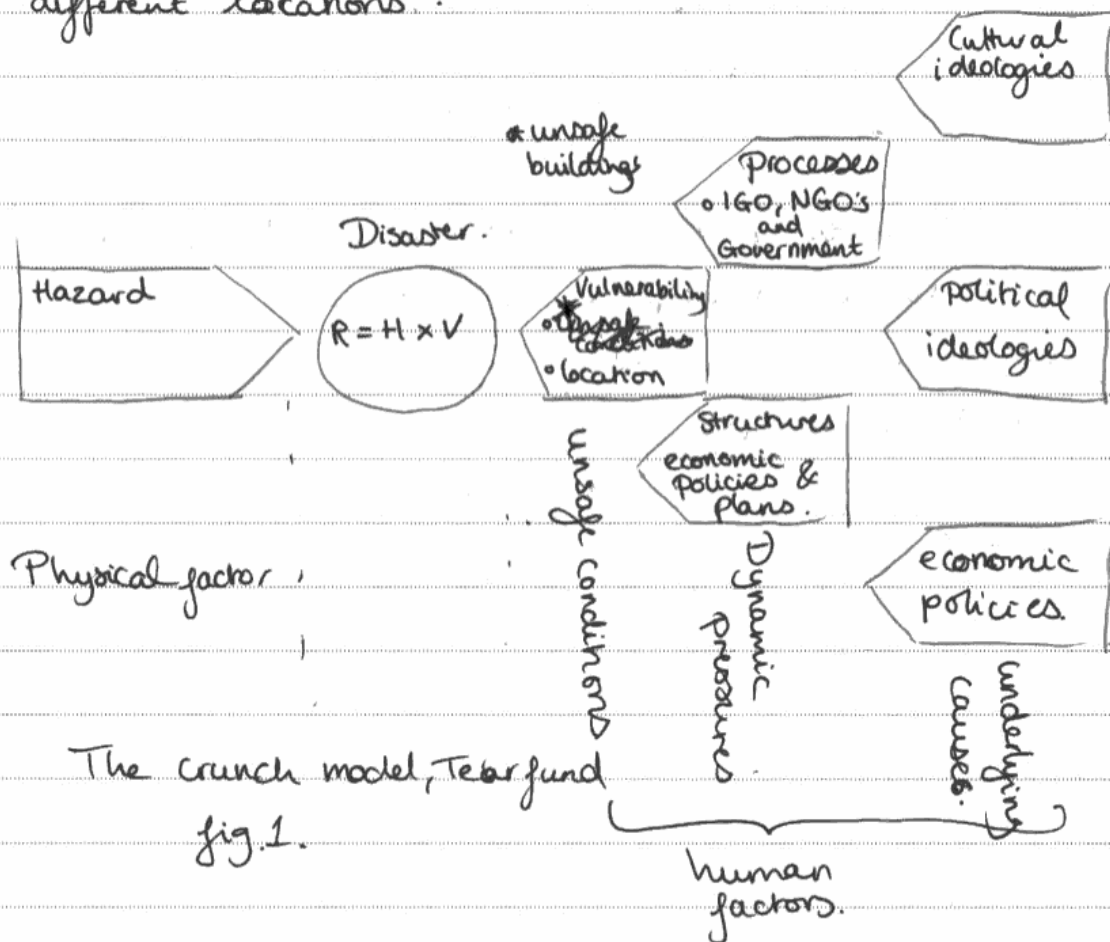 different locations.
Cultural
ideologies
* unsafe
buildings
Processes
• IGO, NGO's
and
Government
Disaster.
Hazard
R = H × V
Vulnerability
*
• location
political
ideologies
Structures
economic
policies &
plans.
economic
policies.
Physical factor
unsafe conditions
Dynamic
pressures.
underlying
causes.
The crunch model, Tearfund
fig.1.
human
factors.